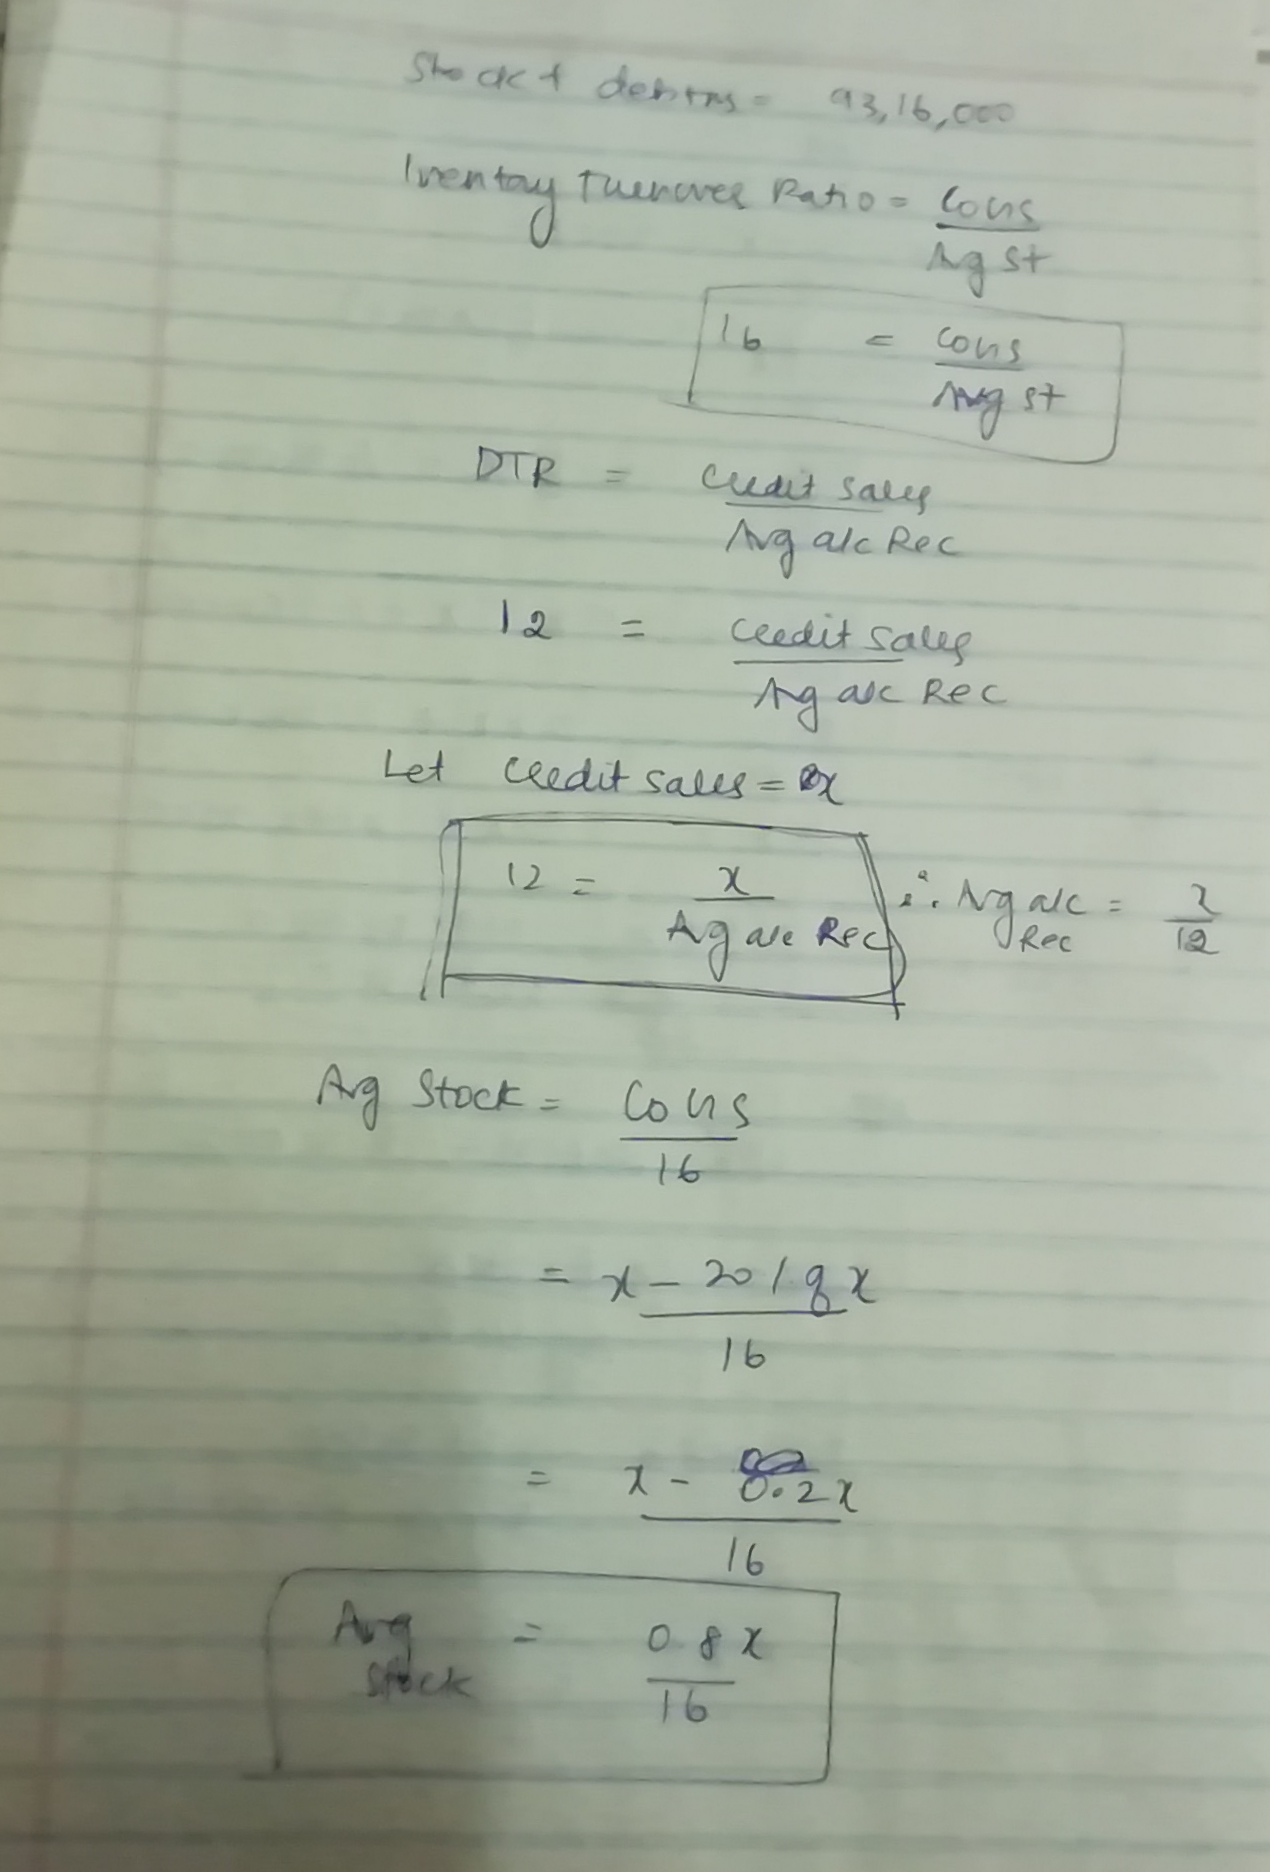 Stock + debtors = 93,16,000
Inventory Turnover Ratio = COGS
Avg St
16 = COGS
Avg st
DTR = Credit sales
Avg a/c Rec
12 = Credit sales
Avg a/c Rec
Let Credit sales = x
12 = x
Avg a/c Rec
∴ Avg a/c Rec = x
12
Avg Stock = COGS
16
= x - 20% of x
16
= x - 0.2x
16
Avg Stock = 0.8x
16